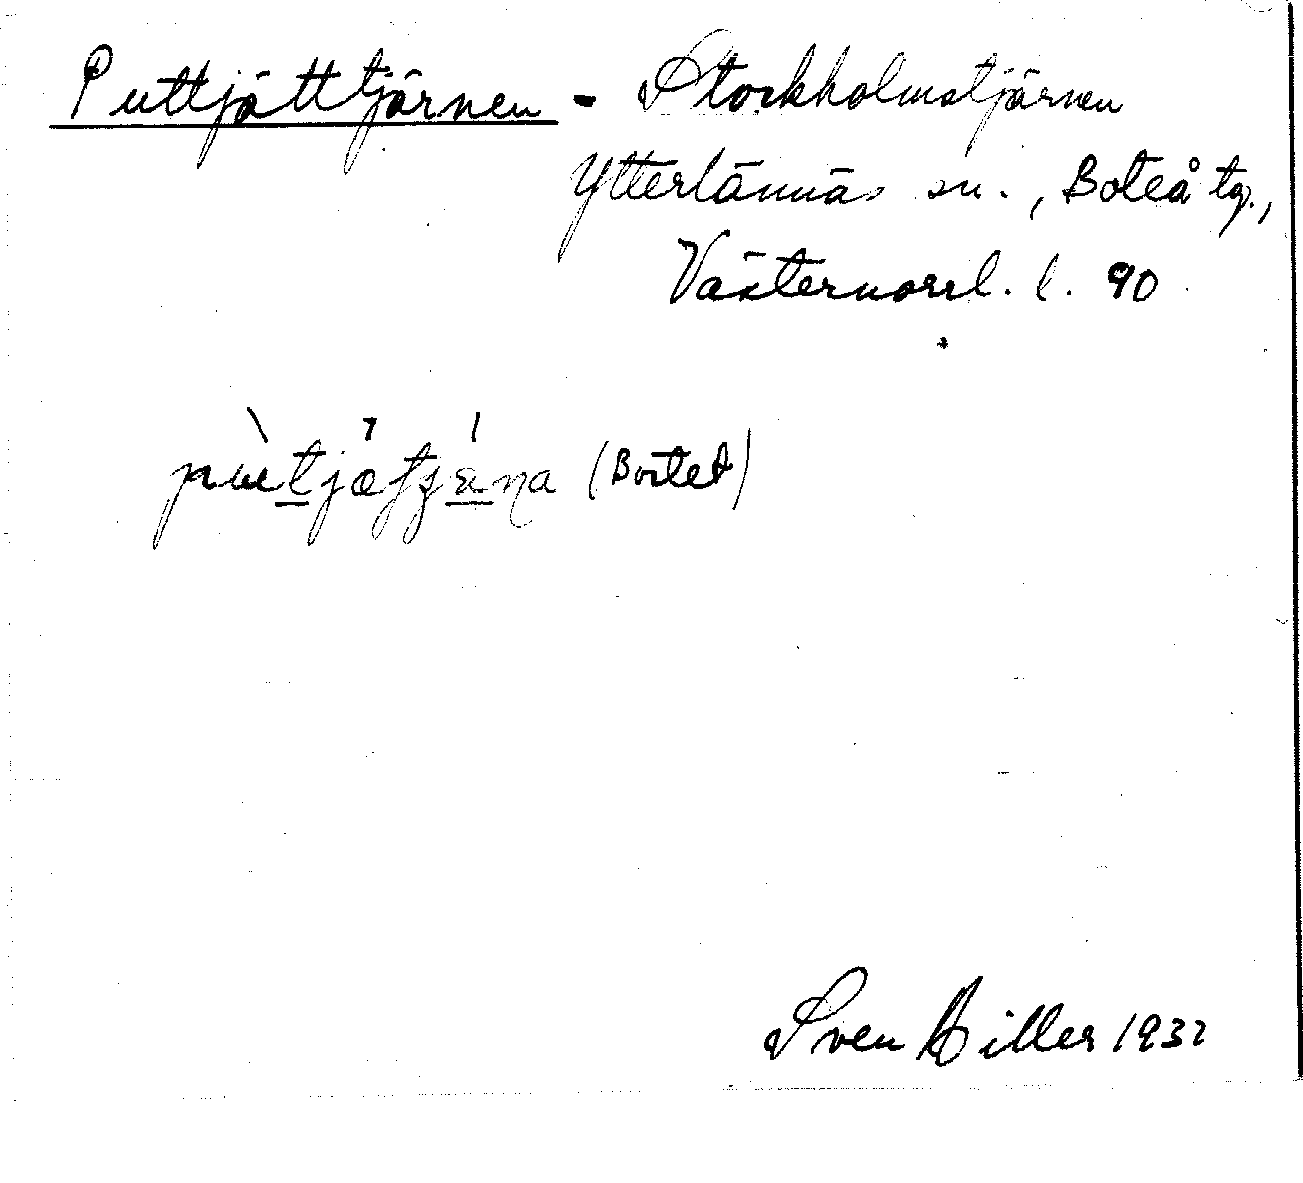 Puttjåttjärnen - Stockholmstjärnen
Ytterlännäs sn., Boteå tg.,
Västernorrl. l. 90
(Bortet)
Sven Hiller 1932